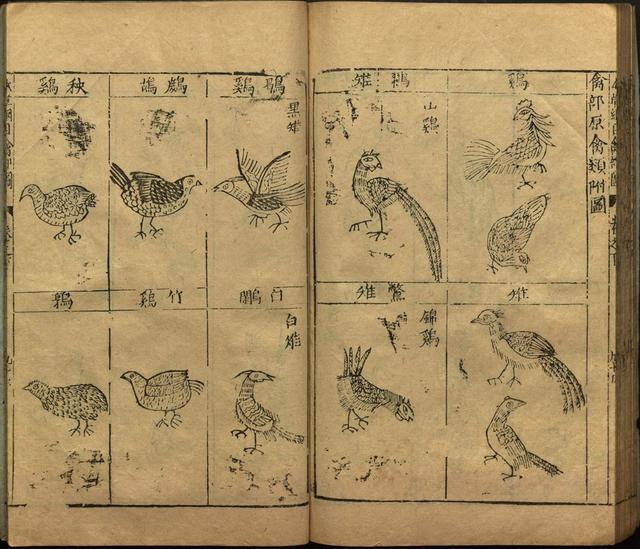 禽部原禽類附圖
鷄
鸐雉
山鷄
雉
鷩雉
錦鷄
鶡鷄
黑雉
鷓鴣
秧鷄
白鷴
白雉
竹鷄
鶉